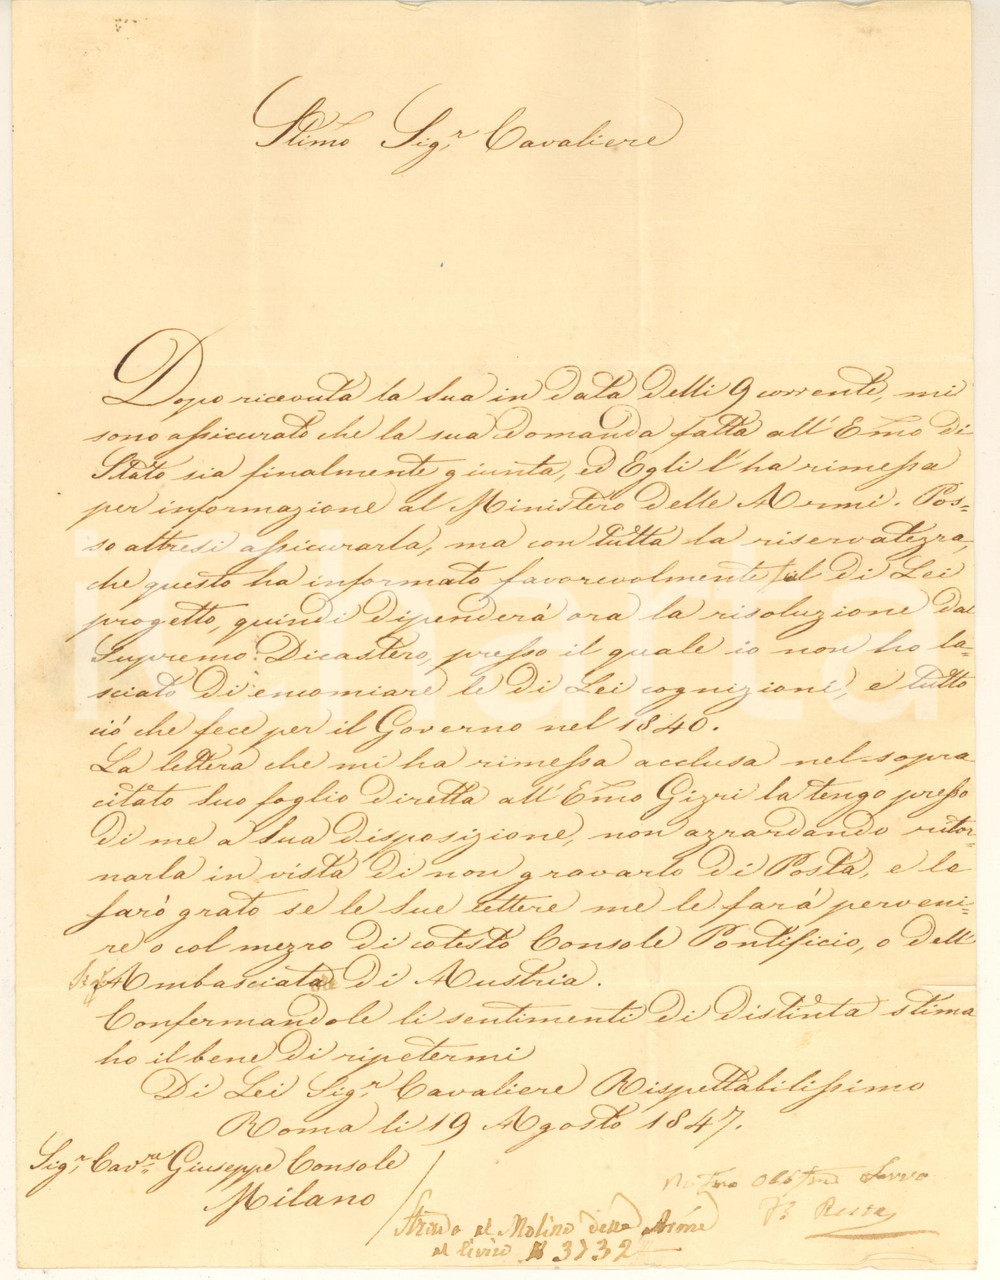 Stimo Sigr Cavaliere
Dopo ricevuta la sua in data delli 9 corrente, mi
sono assicurato che la sua domanda fatta all' Emo di
Stato sia finalmente giunta, ed Egli l' ha rimessa
per informazione al Ministero delle Armi. Pos=
so altresi assicurarla, ma con tutta la riservatezza,
che questo ha informato favorevolmente sul di Lei
progetto, quindi dipenderá ora la risoluzione dal
Supremo Dicastero, presso il quale io non ho la=
sciato di encomiare le di Lei cognizioni, e tutto
ció che fece per il Governo nel 1840.
La lettera che mi ha rimessa acclusa nel sopra
citato suo foglio diretta all' Emo Gizzi la tengo presso
di me a sua disposizione, non azzardando ritor=
narla in vista di non gravarlo di Posta, e le
saró grato se le sue lettere me le fará perveni=
re o col mezzo di cotesto Console Pontificio, o dell'
Ambasciata di Austria.
Confermandole li sentimenti di distinta stima
ho il bene di ripetermi
Di Lei Sigr Cavaliere Rispettabilissimo
Roma li 19 Agosto 1847.
Sigr Cavre Giuseppe Console
Milano
Servo
Strada al Molino delle Arme
al Civico N 3732
iCharta